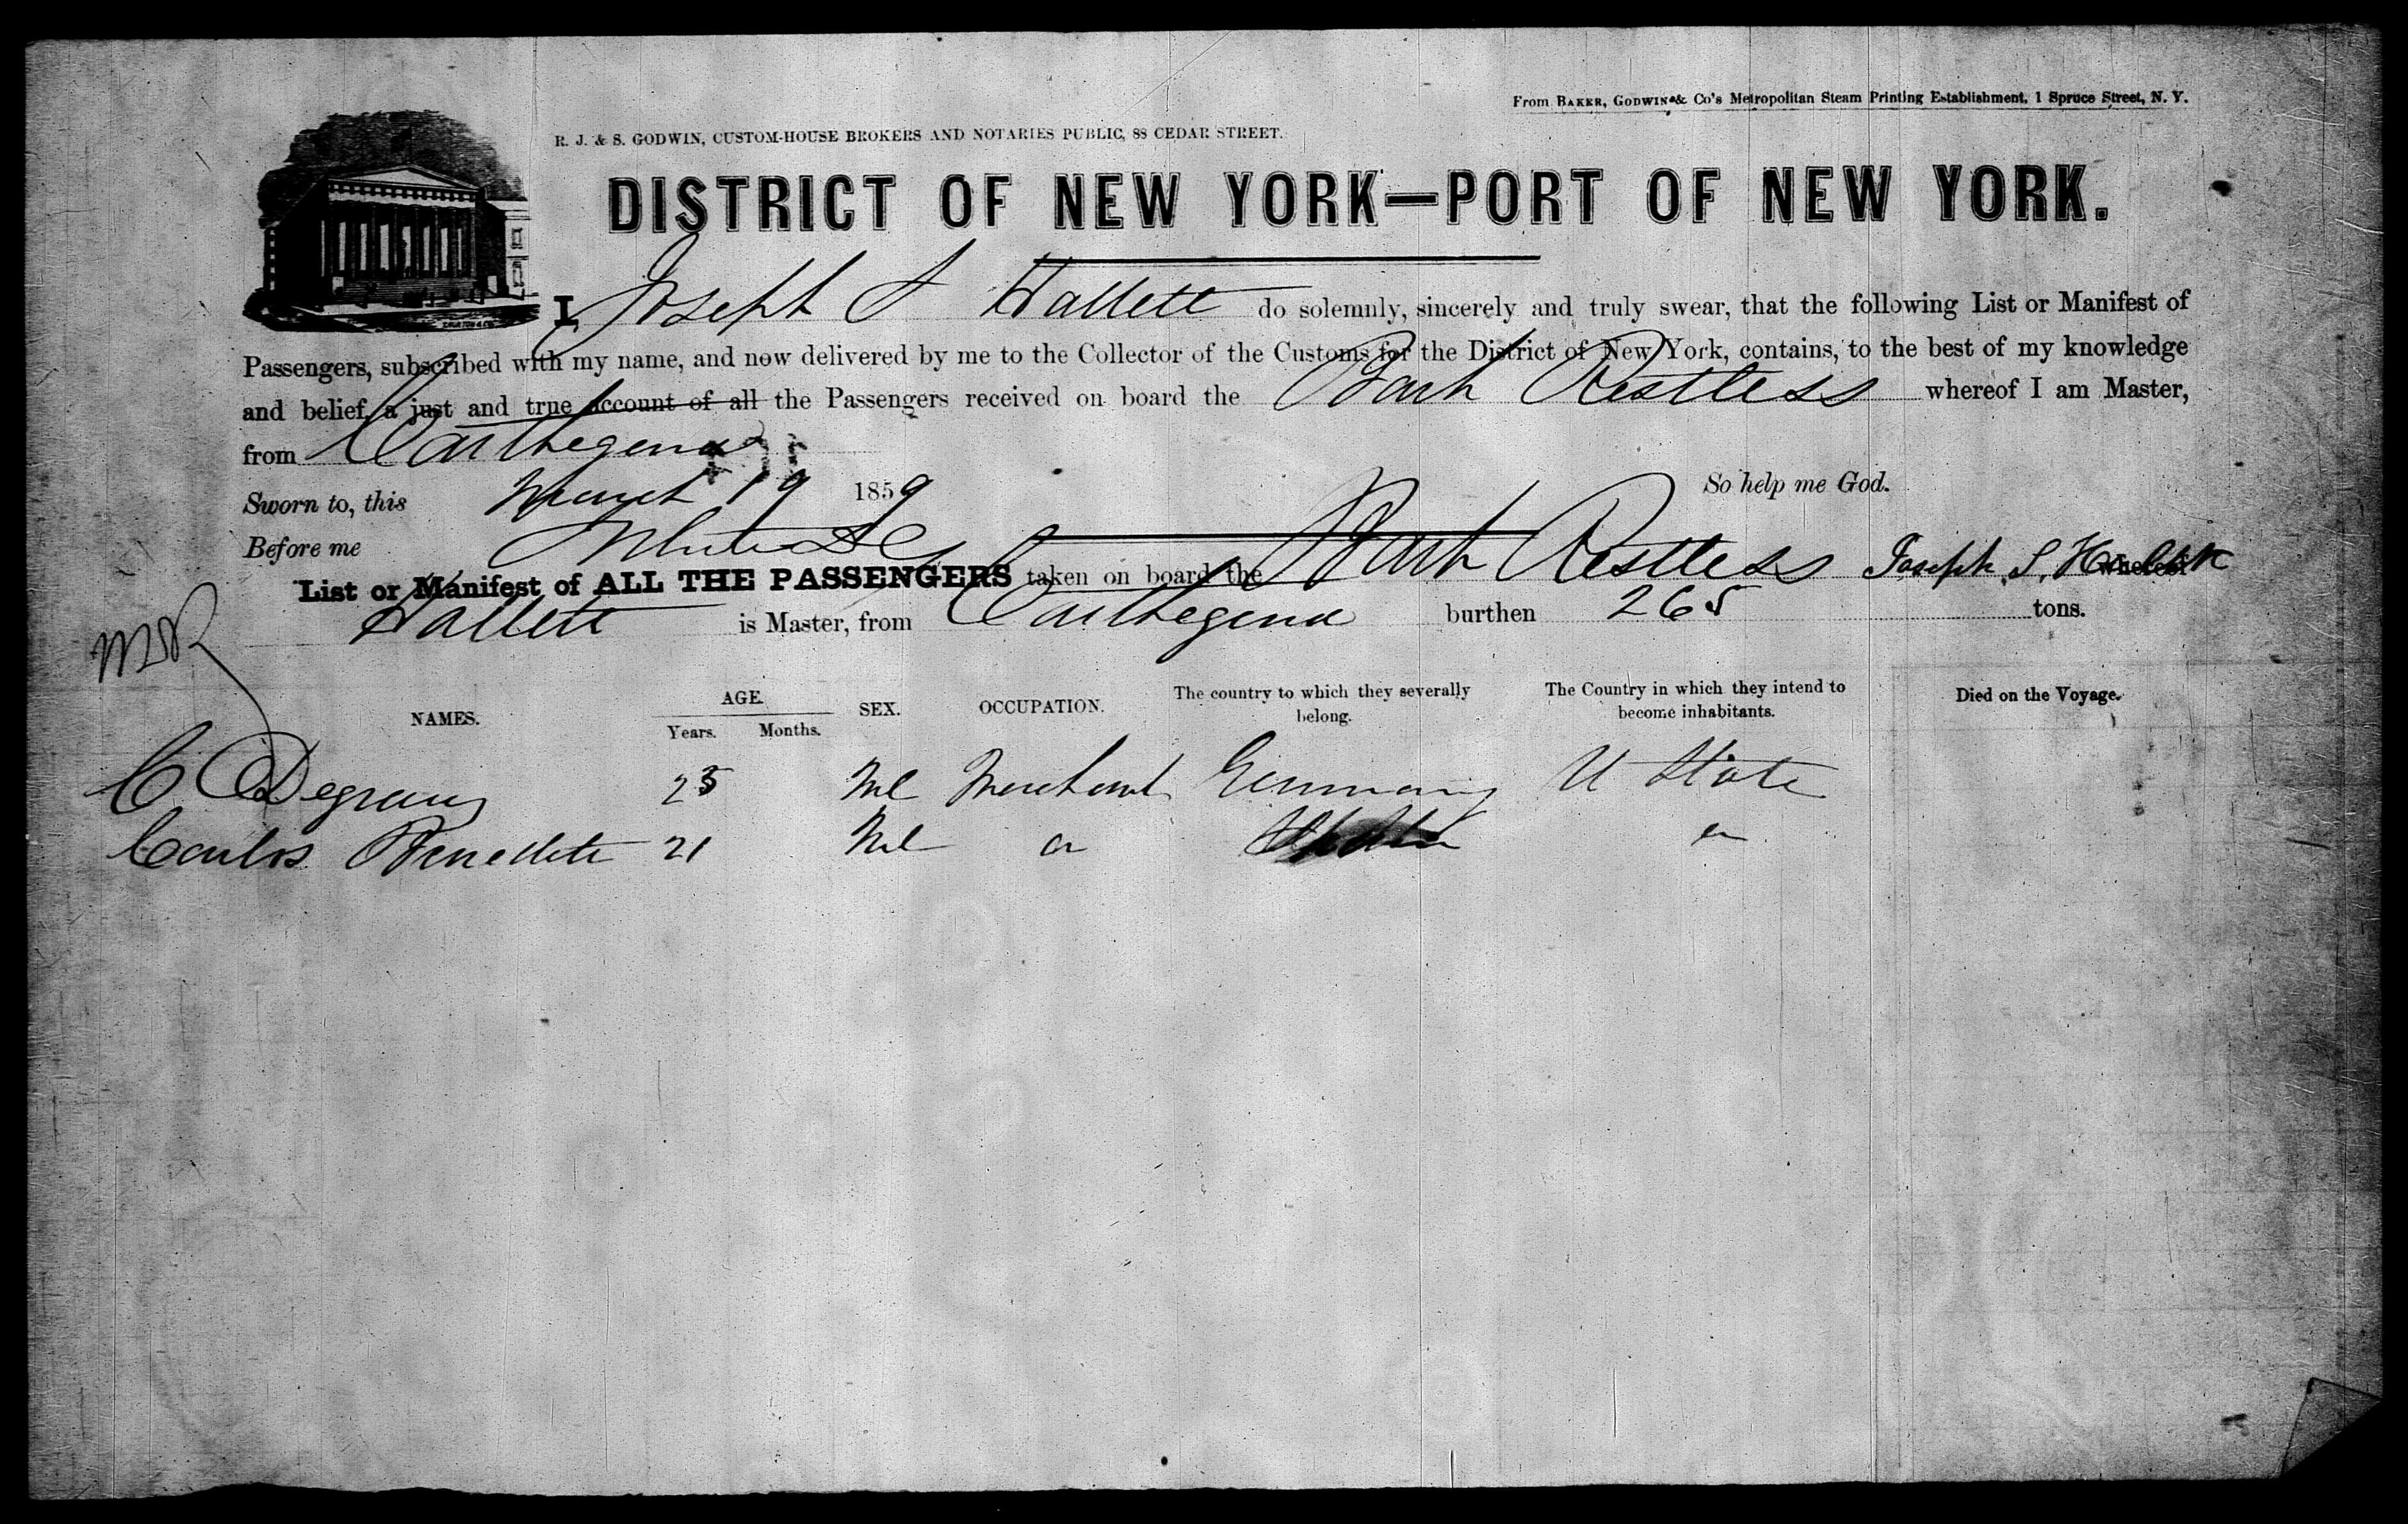 From BAKER, GODWIN & Co's Metropolitan Steam Printing Establishment, 1 Spruce Street, N. Y.
R. J. & S. GODWIN, CUSTOM-HOUSE BROKERS AND NOTARIES PUBLIC, 88 CEDAR STREET.
DISTRICT OF NEW YORK—PORT OF NEW YORK.
I, Joseph S Hallett do solemnly, sincerely and truly swear, that the following List or Manifest of
Passengers, subscribed with my name, and now delivered by me to the Collector of the Customs for the District of New York, contains, to the best of my knowledge
and belief, a just and true account of all the Passengers received on board the Bark Restless whereof I am Master,
from Carthegena
Sworn to, this March 19 1859 So help me God.
Before me Joseph S. Hallett
List or Manifest of ALL THE PASSENGERS taken on board the Bark Restless whereof
Hallett is Master, from Carthegena burthen 265 tons.
NAMES. AGE. SEX. OCCUPATION. The country to which they severally belong. The Country in which they intend to become inhabitants. Died on the Voyage.
Years. Months.
C Degraus 25 Ml Merchant Germany U State
Carlos Benedete 21 Ml